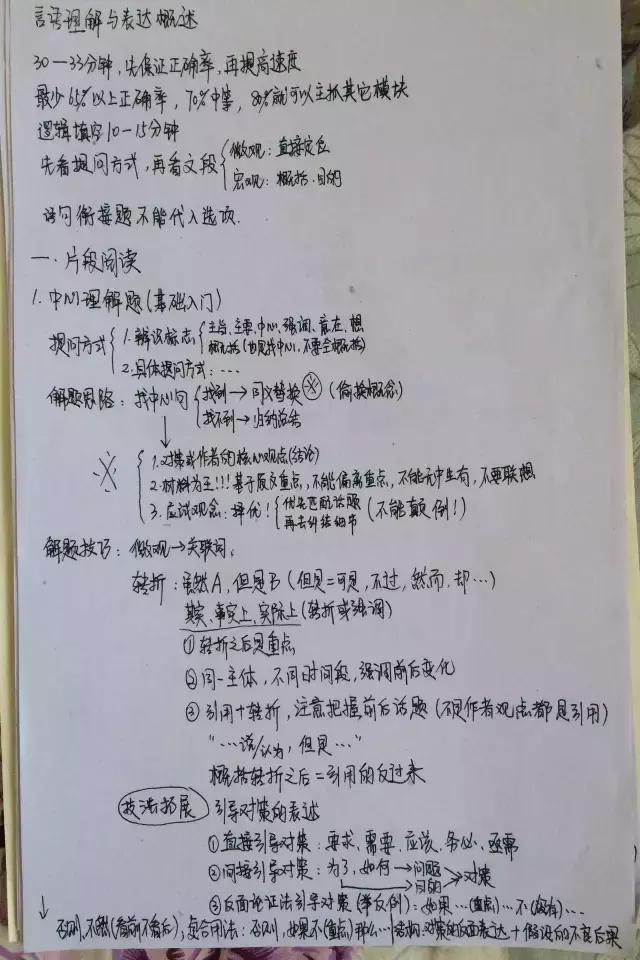 言语理解与表达概述
30—33分钟,先保证正确率,再提高速度
最少65%以上正确率,70%中等,80%就可以主抓其它模块
逻辑填空10-15分钟
先看提问方式,再看文段
微观:直接定位
宏观:概括.目的
语句衔接题不能代入选项.
一.片段阅读
1.中心理解题(基础入门)
提问方式
1.辨识标志
主旨、主要、中心、强调、意在、想
概括(也是找中心,不要全概括)
2.具体提问方式:…
解题思路:找中心句
找到→同义替换※(偷换概念)
找不到→归纳总结
※
1.对策或作者的核心观点(结论)
2.材料为王!!!基于原文重点,不能偏离重点,不能无中生有,不要联想
3.应试观念:择优!
优先匹配话题
再去纠结细节
(不能颠倒!)
解题技巧:微观→关联词。
转折:虽然A,但是B(但是=可是,不过,然而,却…)
其实、事实上、实际上(转折或强调)
①转折之后是重点
②同一主体,不同时间段,强调前后变化
③引用+转折,注意把握前后话题(不是作者观点都是引用)
“…说/认为,但是…”
概括转折之后=引用的反过来
技法拓展
引导对策的表述
①直接引导对策:要求、需要、应该、务必、亟需
②间接引导对策:为了,如何→问题
目的
对策
③反面论证法引导对策(举反例):如果…(重点)…不(没有)…
↓
否则,不然(看前不看后),复合用法:否则,如果不(重点)那么…结构:对策的反面表达+假设的不良后果